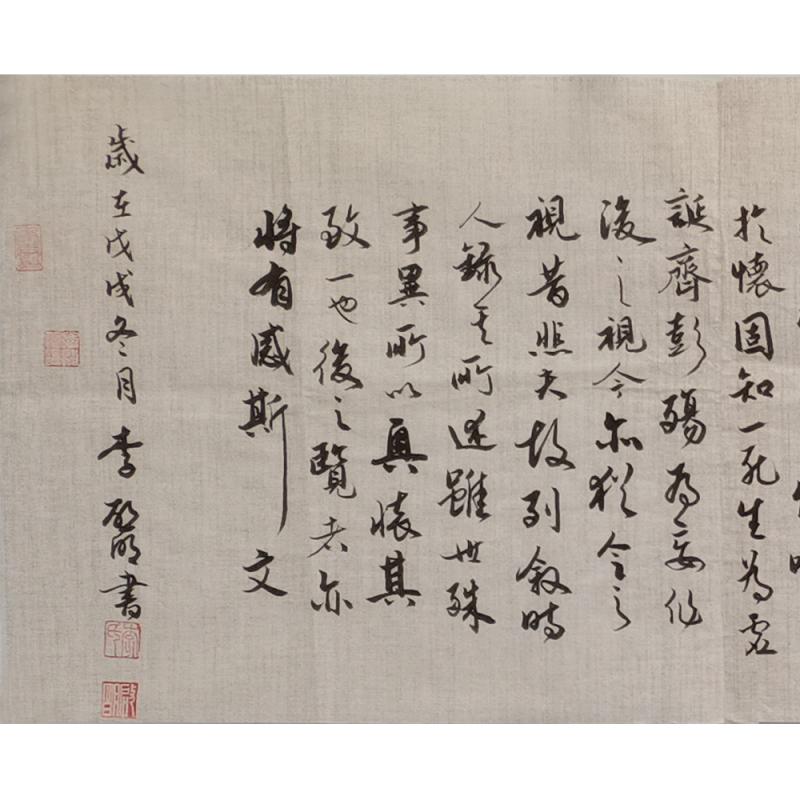 於懷固知一死生為虛
誕齊彭殤為妄作
後之視今亦猶今之
視昔悲夫故列敘時
人錄其所述雖世殊
事異所以興懷其
致一也後之覽者亦
將有感斯文
歲在戊戌冬月李啟明書